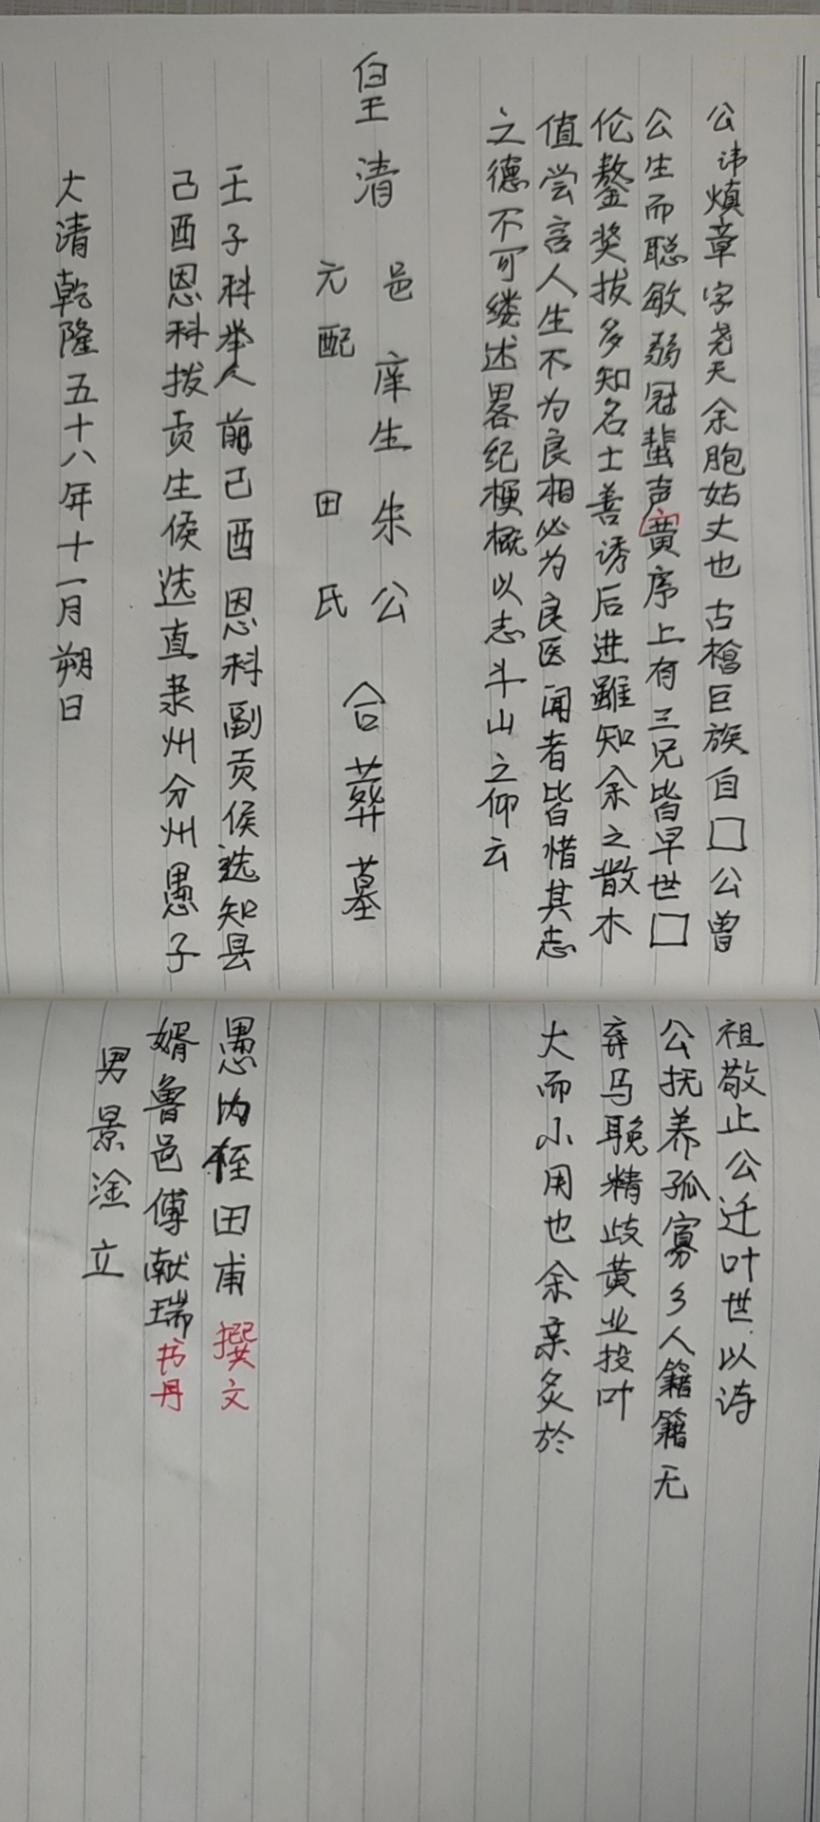 公讳章字尧天余胞姑丈也古檜巨族自□公曾祖敬止公迁叶世以诗
公生而聪敏弱冠蜚声黉序上有三兄皆早世□公抚养孤寡乡人籍籍无
伦鏊奖拔多知名士善诱后进雖知余之散木弃马精歧黄业投叶
值尝言人生不为良相必为良医闻者皆惜其志大而小用也余亲炙於
之德不可缕述畧纪梗概以志斗山之仰云
皇清
邑庠生朱公
元配田氏
合葬墓
壬子科举人前己酉恩科副贡候选知县愚内侄田甫撰文
己酉恩科拔贡生候选直隶州分州愚子婿鲁邑傅献瑞书丹
男景淦立
大清乾隆五十八年十一月朔日